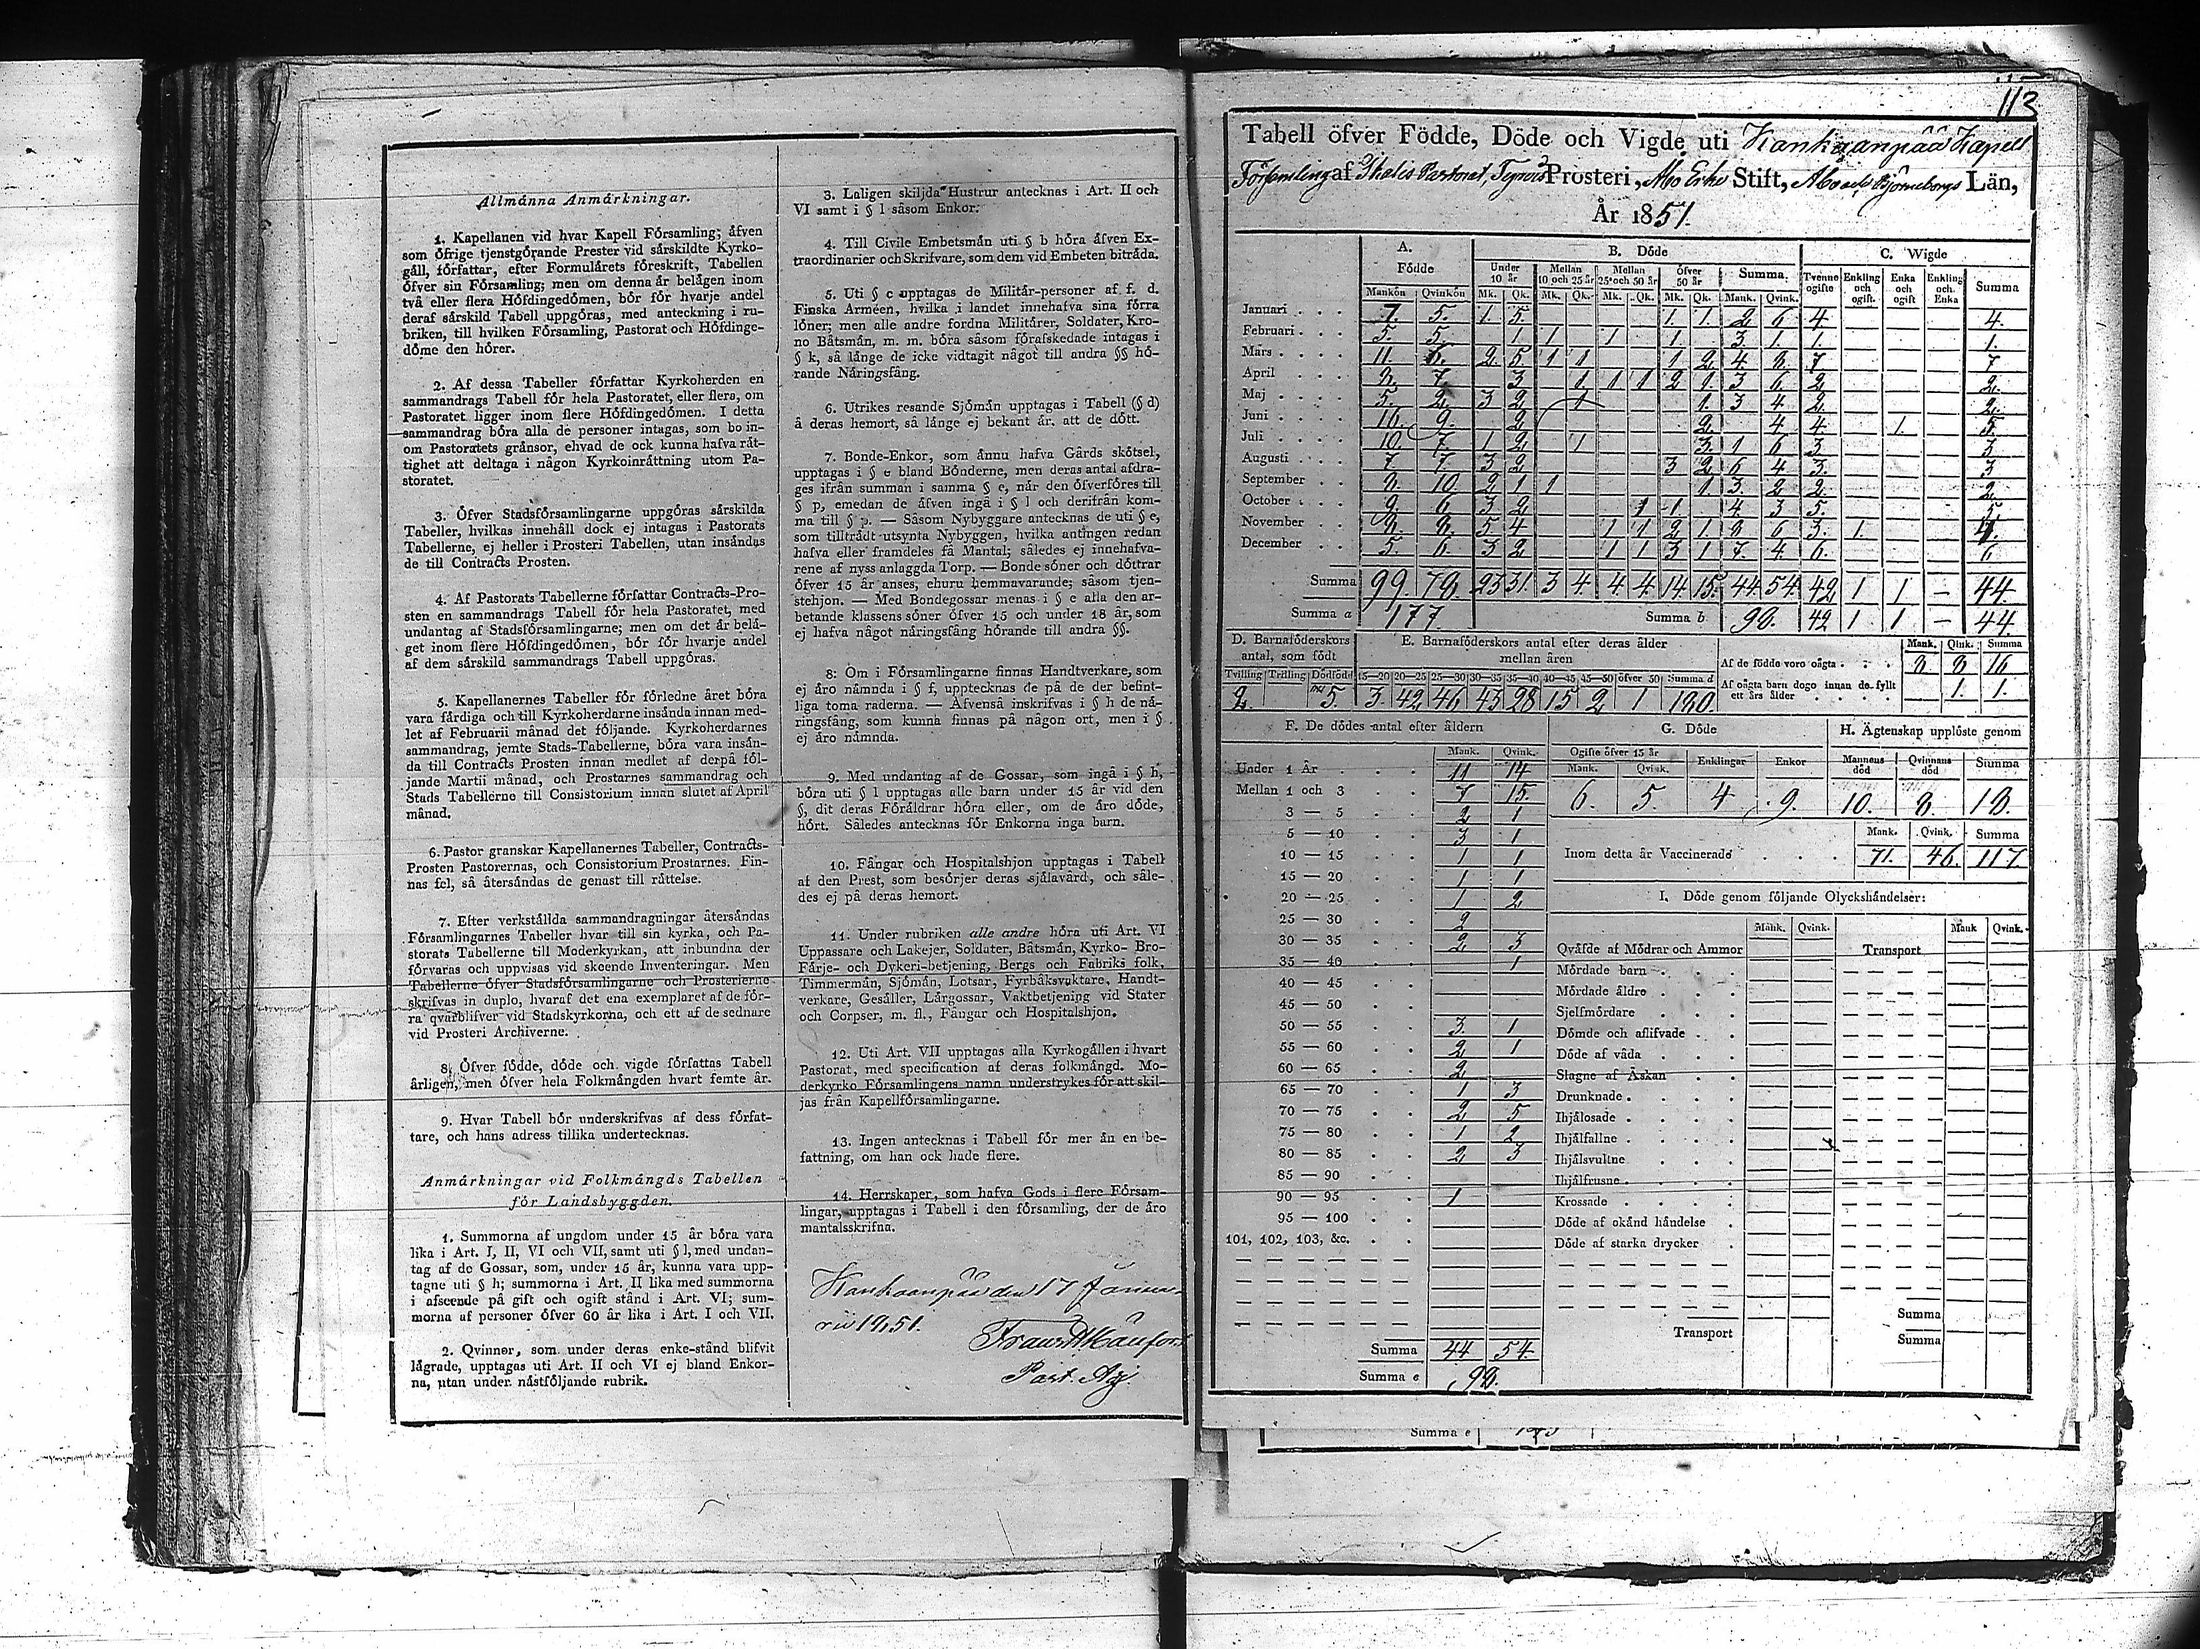 Allmänna Anmärkningar.
1. Kapellanen vid hvar Kapell Församling; äfven
som öfrige tjenstgörande Prester vid särskildte Kyrko-
gäll, författar, efter Formulärets föreskrift, Tabellen
öfver sin Församling; men om denna är belägen inom
två eller flera Höfdingedömen, bör för hvarje andel
deraf särskild Tabell uppgöras, med anteckning i ru-
briken, till hvilken Församling, Pastorat och Höfdinge-
döme den hörer.
2. Af dessa Tabeller författar Kyrkoherden en
sammandrags Tabell för hela Pastoratet, eller flera, om
Pastoratet ligger inom flere Höfdingedömen. I detta
sammandrag böra alla de personer intagas, som bo in-
om Pastoratets gränsor, ehvad de ock kunna hafva rät-
tighet att deltaga i någon Kyrkoinrättning utom Pa-
storatet.
3. Öfver Stadsförsamlingarne uppgöras särskilda
Tabeller, hvilkas innehåll dock ej intagas i Pastorats
Tabellerne, ej heller i Prosteri Tabellen, utan insändas
de till Contracts Prosten.
4. Af Pastorats Tabellerne författar Contracts-Pro-
sten en sammandrags Tabell för hela Pastoratet, med
undantag af Stadsförsamlingarne; men om det är belä-
get inom flere Höfdingedömen, bör för hvarje andel
af dem särskild sammandrags Tabell uppgöras.
5. Kapellanernes Tabeller för förledne året böra
vara färdiga och till Kyrkoherdarne insända innan med-
let af Februarii månad det följande. Kyrkoherdarnes
sammandrag, jemte Stads-Tabellerne, böra vara insän-
da till Contracts Prosten innan medlet af derpå föl-
jande Martii månad, och Prostarnes sammandrag och
Stads Tabellerne till Consistorium innan slutet af April
månad.
6. Pastor granskar Kapellanernes Tabeller, Contracts-
Prosten Pastorernas, och Consistorium Prostarnes. Fin-
nas fel, så återsändas de genast till rättelse.
7. Efter verkställda sammandragningar återsändas
Församlingarnes Tabeller hvar till sin kyrka, och Pa-
storats Tabellerne till Moderkyrkan, att inbundna der
förvaras och uppvisas vid skeende Inventeringar. Men
Tabellerne öfver Stadsförsamlingarne och Prosterierne
skrifvas in duplo, hvaraf det ena exemplaret af de för-
ra qvarblifver vid Stadskyrkorna, och ett af de sednare
vid Prosteri Archiverne.
8. Öfver födde, döde och vigde författas Tabell
årligen, men öfver hela Folkmängden hvart femte år.
9. Hvar Tabell bör underskrifvas af dess förfat-
tare, och hans adress tillika undertecknas.
Anmärkningar vid Folkmängds Tabellen
för Landsbyggden.
1. Summorna af ungdom under 15 år böra vara
lika i Art. I, II, VI och VII, samt uti § l, med undan-
tag af de Gossar, som, under 15 år, kunna vara upp-
tagne uti § h; summorna i Art. II lika med summorna
i afseende på gift och ogift stånd i Art. VI; sum-
morna af personer öfver 60 år lika i Art. I och VII.
2. Qvinnor, som under deras enke-stånd blifvit
lägrade, upptagas uti Art. II och VI ej bland Enkor-
na, utan under nästföljande rubrik.
3. Laligen skiljda Hustrur antecknas i Art. II och
VI samt i § l såsom Enkor.
4. Till Civile Embetsmän uti § b höra äfven Ex-
traordinarier och Skrifvare, som dem vid Embeten biträda.
5. Uti § c upptagas de Militär-personer af f. d.
Finska Armeen, hvilka i landet innehafva sina förra
löner; men alle andre fordna Militärer, Soldater, Kro-
no Båtsmän, m. m. böra såsom förafskedade intagas i
§ k, så länge de icke vidtagit något till andra §§ hö-
rande Näringsfång.
6. Utrikes resande Sjömän upptagas i Tabell (§ d)
å deras hemort, så länge ej bekant är, att de dött.
7. Bonde-Enkor, som ännu hafva Gårds skötsel,
upptagas i § e bland Bönderne, men deras antal afdra-
ges ifrån summan i samma § e, när den öfverföres till
§ p, emedan de äfven ingå i § l och derifrån kom-
ma till § p. — Såsom Nybyggare antecknas de uti § e,
som tillträdt utsynta Nybyggen, hvilka antingen redan
hafva eller framdeles få Mantal; således ej innehafva-
rene af nyss anlaggda Torp. — Bonde söner och döttrar
öfver 15 år anses, churu hemmavarande; såsom tjen-
stehjon. — Med Bondegossar menas i § e alla den ar-
betande klassens söner öfver 15 och under 18 år, som
ej hafva något näringsfång hörande till andra §§.
8: Om i Församlingarne finnas Handtverkare, som
ej äro nämnda i § f, upptecknas de på de der befint-
liga toma raderna. — Äfvenså inskrifvas i § h de nä-
ringsfång, som kunna finnas på någon ort, men i §
ej äro nämnda.
9. Med undantag af de Gossar, som ingå i § h,
böra uti § l upptagas alle barn under 15 år vid den
§, dit deras Föräldrar höra eller, om de äro döde,
hört. Således antecknas för Enkorna inga barn.
10. Fångar och Hospitalshjon upptagas i Tabell
af den Prest, som besörjer deras själavård, och såle-
des ej på deras hemort.
11. Under rubriken alle andre höra uti Art. VI
Uppassare och Lakejer, Soldater, Båtsmän, Kyrko- Bro-
Färje- och Dykeri-betjening, Bergs och Fabriks folk,
Timmermän, Sjömän, Lotsar, Fyrbåksvaktare, Handt-
verkare, Gesäller, Lärgossar, Vaktbetjening vid Stater
och Corpser, m. fl., Fångar och Hospitalshjon.
12. Uti Art. VII upptagas alla Kyrkogällen i hvart
Pastorat, med specification af deras folkmängd. Mo-
derkyrko Församlingens namn understrykes för att skil-
jas från Kapellförsamlingarne.
13. Ingen antecknas i Tabell för mer än en be-
fattning, om han ock hade flere.
14. Herrskaper, som hafva Gods i flere Försam-
lingar, upptagas i Tabell i den församling, der de äro
mantalsskrifna.
Kankaanpää den 17 Janua-
rii 1851.
Past. Adj.
113
Tabell öfver Födde, Döde och Vigde uti Kankaanpää Kapell
Församling af Ikalis Pastorat, Tyrvis Prosteri, Åbo Erke Stift, Åbo och Björneborgs Län,
År 1851.
A. B. Döde C. Wigde
Födde Under 10 år Mellan 10 och 25 år Mellan 25 och 50 år Öfver 50 år Summa. Tvenne ogifte Enkling och ogift. Enka och ogift Enkling och Enka Summa
Mankön Qvinkön Mk. Qk. Mk. Qk. Mk. Qk. Mk. Qk. Mank. Qvink.
Januari 7. 5. 1. 5. 1. 1. 2 6 4. 4.
Februari 5. 5. 1 1 1 1. 3. 1. 1. 1.
Mars 11. 6. 2. 5 1 1 1 2. 4. 8. 7 7
April 8. 7. 3 1. 1 1 2 1. 3 6 2. 2.
Maj 5. 2. 3 2. 1 1. 3 4. 2. 2.
Juni 16. 9. 2. 2. 4 4. 1. 5.
Juli 10. 7 1 2. 1 3. 1 6 3 3
Augusti 7 7. 3 2 3 2. 6 4 3. 3.
September 8. 10. 2. 1 1 1. 3. 2 2. 2.
October 9. 6. 3 2. 1 1. 4 3 5. 5.
November 8. 8. 5 4 1 1 2 1. 8 6 3. 1. 4.
December 5. 6. 3 2 1 1 3 1 7. 4. 6. 6
Summa 99. 78. 23 31. 3 4. 4 4. 14. 15. 44. 54. 42 1 1 — 44.
Summa a 177 Summa b 98. 42 1 1 — 44.
D. Barnaföderskors antal, som födt E. Barnaföderskors antal efter deras ålder mellan åren Mank. Qvink. Summa
Af de födde voro oägta 8 8 16
Af oägta barn dogo innan de fyllt ett års ålder 1. 1.
Tvilling Trilling Dödfödd 15—20 20—25 25—30 30—35 35—40 40—45 45—50 öfver 50 Summa d
2. 5. 3. 42 46 43 28 15 2 1 180.
F. De dödes antal efter åldern
Mank. Qvink.
Under 1 År 11 14
Mellan 1 och 3 7 15.
3 — 5 2 1
5 — 10 3 1
10 — 15 1 1
15 — 20 1 1
20 — 25 1 2
25 — 30 2
30 — 35 2 3
35 — 40 1
40 — 45
45 — 50
50 — 55 3. 1
55 — 60 2 1
60 — 65 2
65 — 70 1 3
70 — 75 2 5
75 — 80 1 2
80 — 85 2 3
85 — 90
90 — 95 1
95 — 100
101, 102, 103, &c.
Summa 44 54.
Summa e 98.
G. Döde
Ogifte öfver 15 år Enklingar Enkor
Mank. Qvink.
6. 5. 4 9.
H. Ägtenskap upplöste genom
Mannens död Qvinnans död Summa
10. 8. 18.
Mank. Qvink. Summa
Inom detta år Vaccinerade 71. 46. 117
I. Döde genom följande Olyckshändelser:
Mank. Qvink. Mank Qvink.
Qväfde af Mödrar och Ammor Transport
Mördade barn
Mördade äldre
Sjelfmördare
Dömde och aflifvade
Döde af våda
Slagne af Åskan
Drunknade
Ihjälosade
Ihjälfallne
Ihjälsvultne
Ihjälfrusne
Krossade
Döde af okänd händelse
Döde af starka drycker
Summa
Transport Summa
Summa e